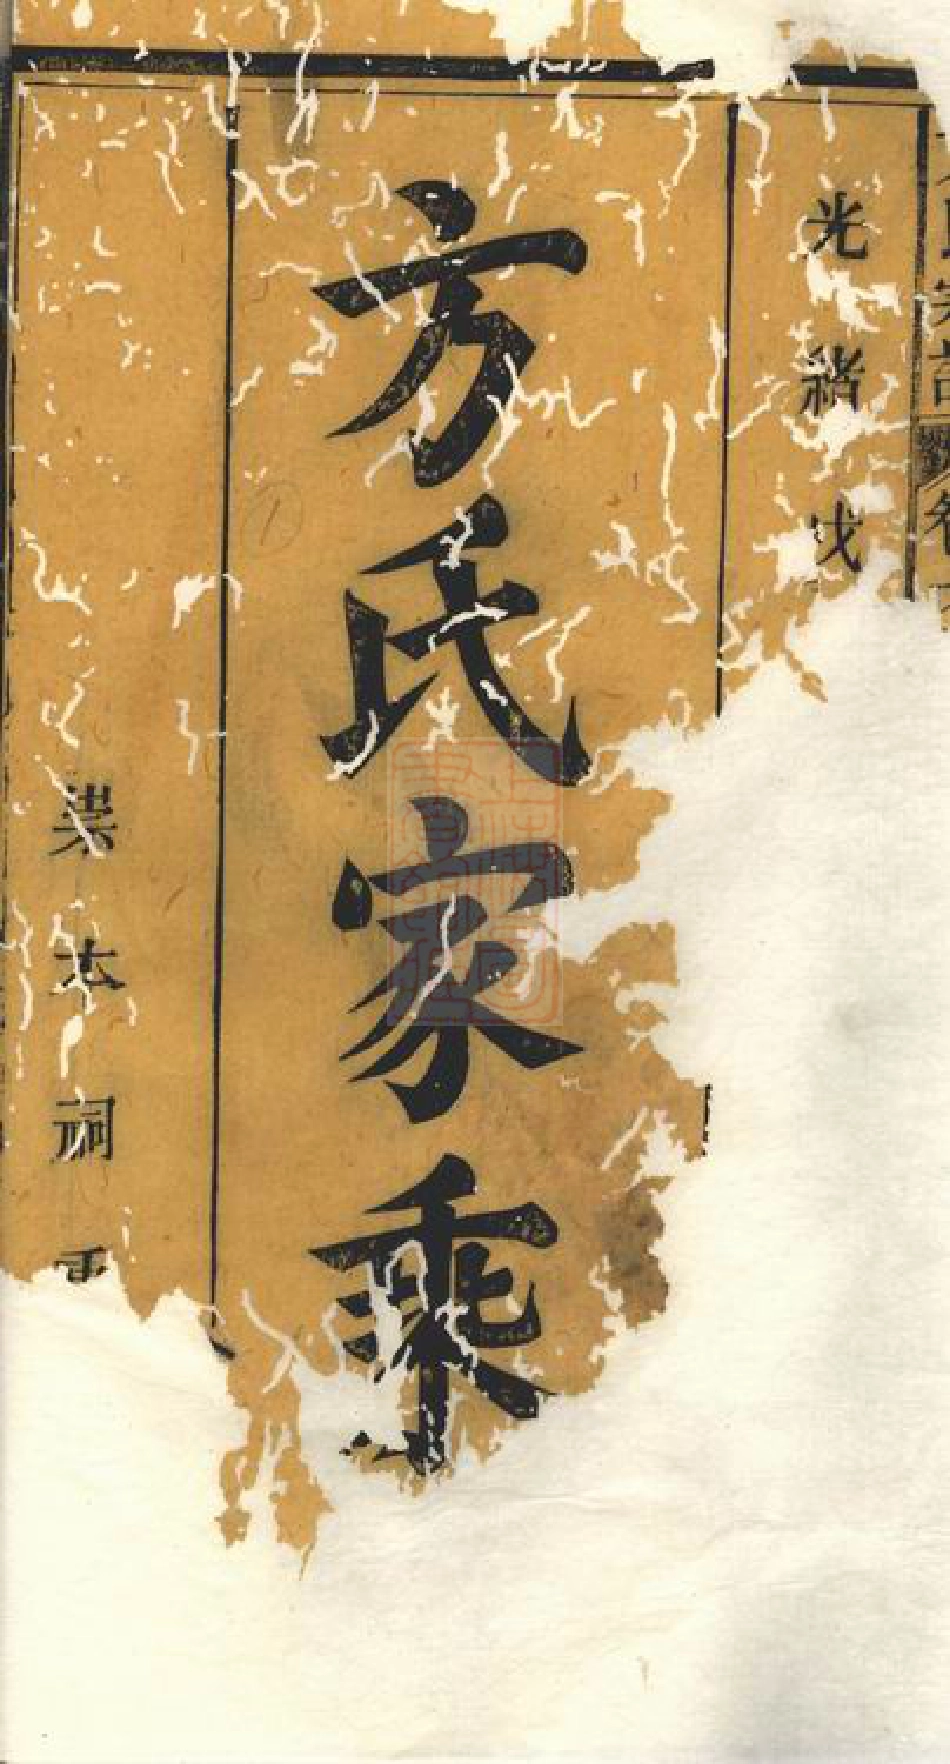 光緒戊
方氏家乘
崇本祠重